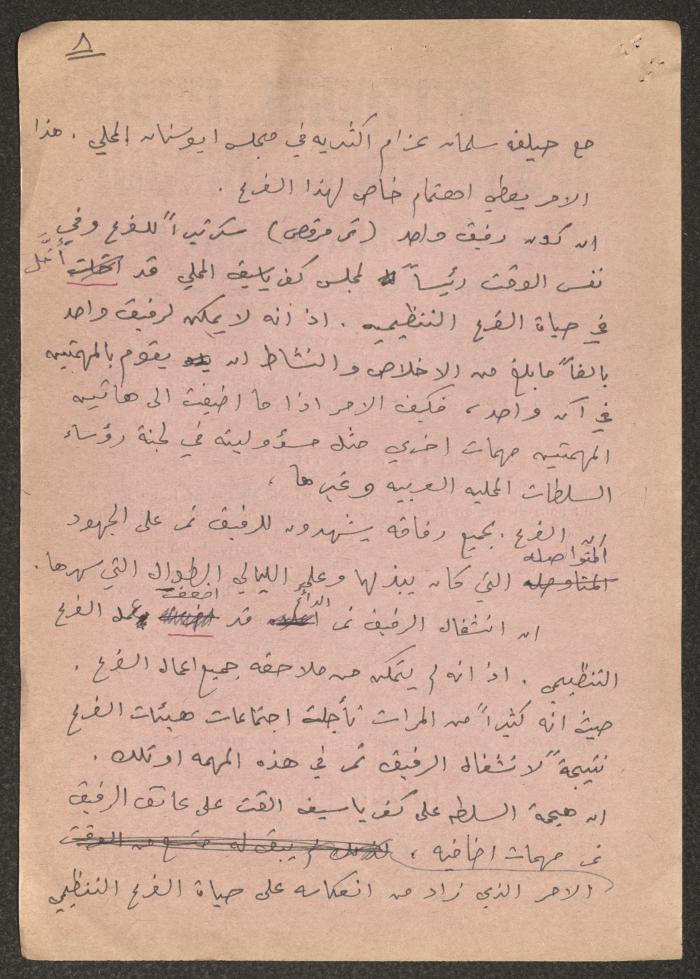 ٨
مع حليفه سلمان عزام اكثريه في مجلس ابوسنان المحلي . هذا
الامر يعطي اهتمام خاص لهذا الفرع .
ان كون رفيق واحد (نمر مرقص) سكرتيراً للفرع وفي
نفس الوقت رئيساً لمجلس كفرياسيف المحلي قد أثّر
في حياة الفرع التنظيميه . اذ انه لا يمكن لرفيق واحد
بالغاً ما بلغ من الاخلاص والنشاط ان يقوم بالمهمتين
في آن واحد ، فكيف الامر اذا ما اضيفت الى هاتين
المهمتين مهمات اخرى مثل مسؤوليته في لجنة رؤساء
السلطات المحليه العربيه وغيرها .
ان الفرع بجميع رفاقه يشهدون للرفيق نمر على الجهود
المتواصله
التي كان يبذلها وعلى الليالي الطوال التي سهرها .
ان انشغال الرفيق نمر الدائم قد اضعف عمل الفرع
التنظيمي . اذ انه لم يتمكن من ملاحقه جميع اعمال الفرع .
حيث انه كثيراً من المرات تأجلت اجتماعات هيئات الفرع
نتيجةً لانشغال الرفيق نمر في هذه المهمه او تلك .
ان هجمة السلطه على كفرياسيف القت على عاتق الرفيق
نمر مهمات اضافيه ، لذلك لم يبق له متسع من الوقت
الامر الذي زاد من انعكاسه على حياة الفرع التنظيمي